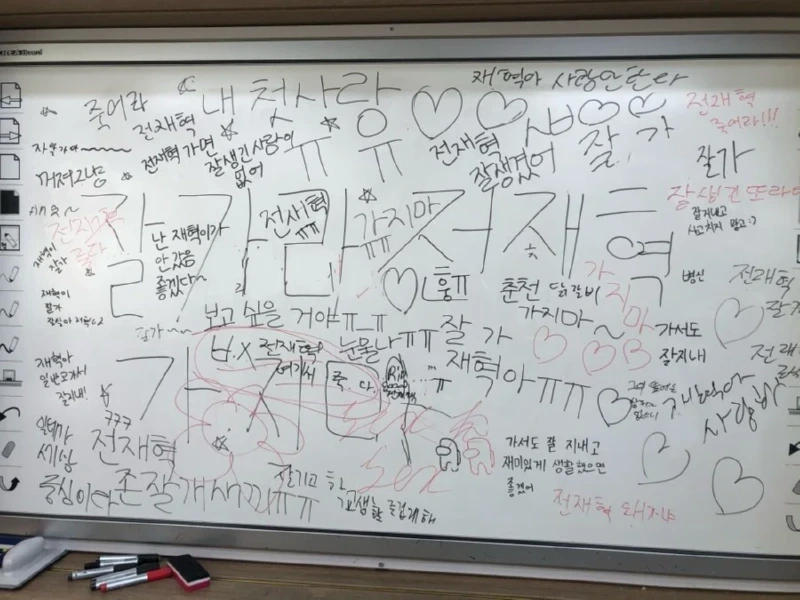 재혁아 사랑안한다
죽어라
내 첫사랑
전재혁
전재혁 가면
잘생긴 사람이
없어
ㅠ ㅠ
전재혁
잘생겼어
잘 가
전재혁
죽어라!!!
잘가
꺼져그냥
잘가라 전재혁
전재혁
ㅠㅠ
가지마
ㅠㅠ
잘지내고
사고치지 말고:)
전재혁
재혁이
잘가
난 재혁이가
안 갔음
좋겠다~
흥ㅠ
춘천 닭갈비
가지마~
가지마
병신
가서도
잘지내
전재혁
잘가
재혁이
잘가
보고 싶을 거야ㅠ_ㅠ
잘가~~
눈물나ㅠㅠ
잘 가
재혁아ㅠㅠ
전재혁
여기서
죽다
Rip
가지
재혁아
잘지내!
ㅋㅋㅋ
전재혁
세상
중심이다
존잘개새끼ㅠㅠ
즐겁게해
sex
가서도 잘 지내고
재미있게 생활했으면
좋겠어
사랑해
전재혁 돼지야